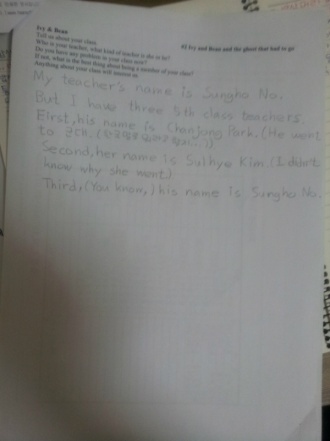 Ivy & Bean
Tell us about your class.
Who is your teacher, what kind of teacher is she or he?
Do you have any problem in your class now?
If not, what is the best thing about being a member of your class?
Anything about your class will interest us
4) Ivy and Bean and the ghost that had to go
My teacher's name is Sungho No.
But I have three 5th class teachers.
First, his name is Chanjung Park. (He went
to 군대.
Second, her name is Sulhye Kim. (I didn't
know why she went.)
Third, (You know,) his name is Sungho No.